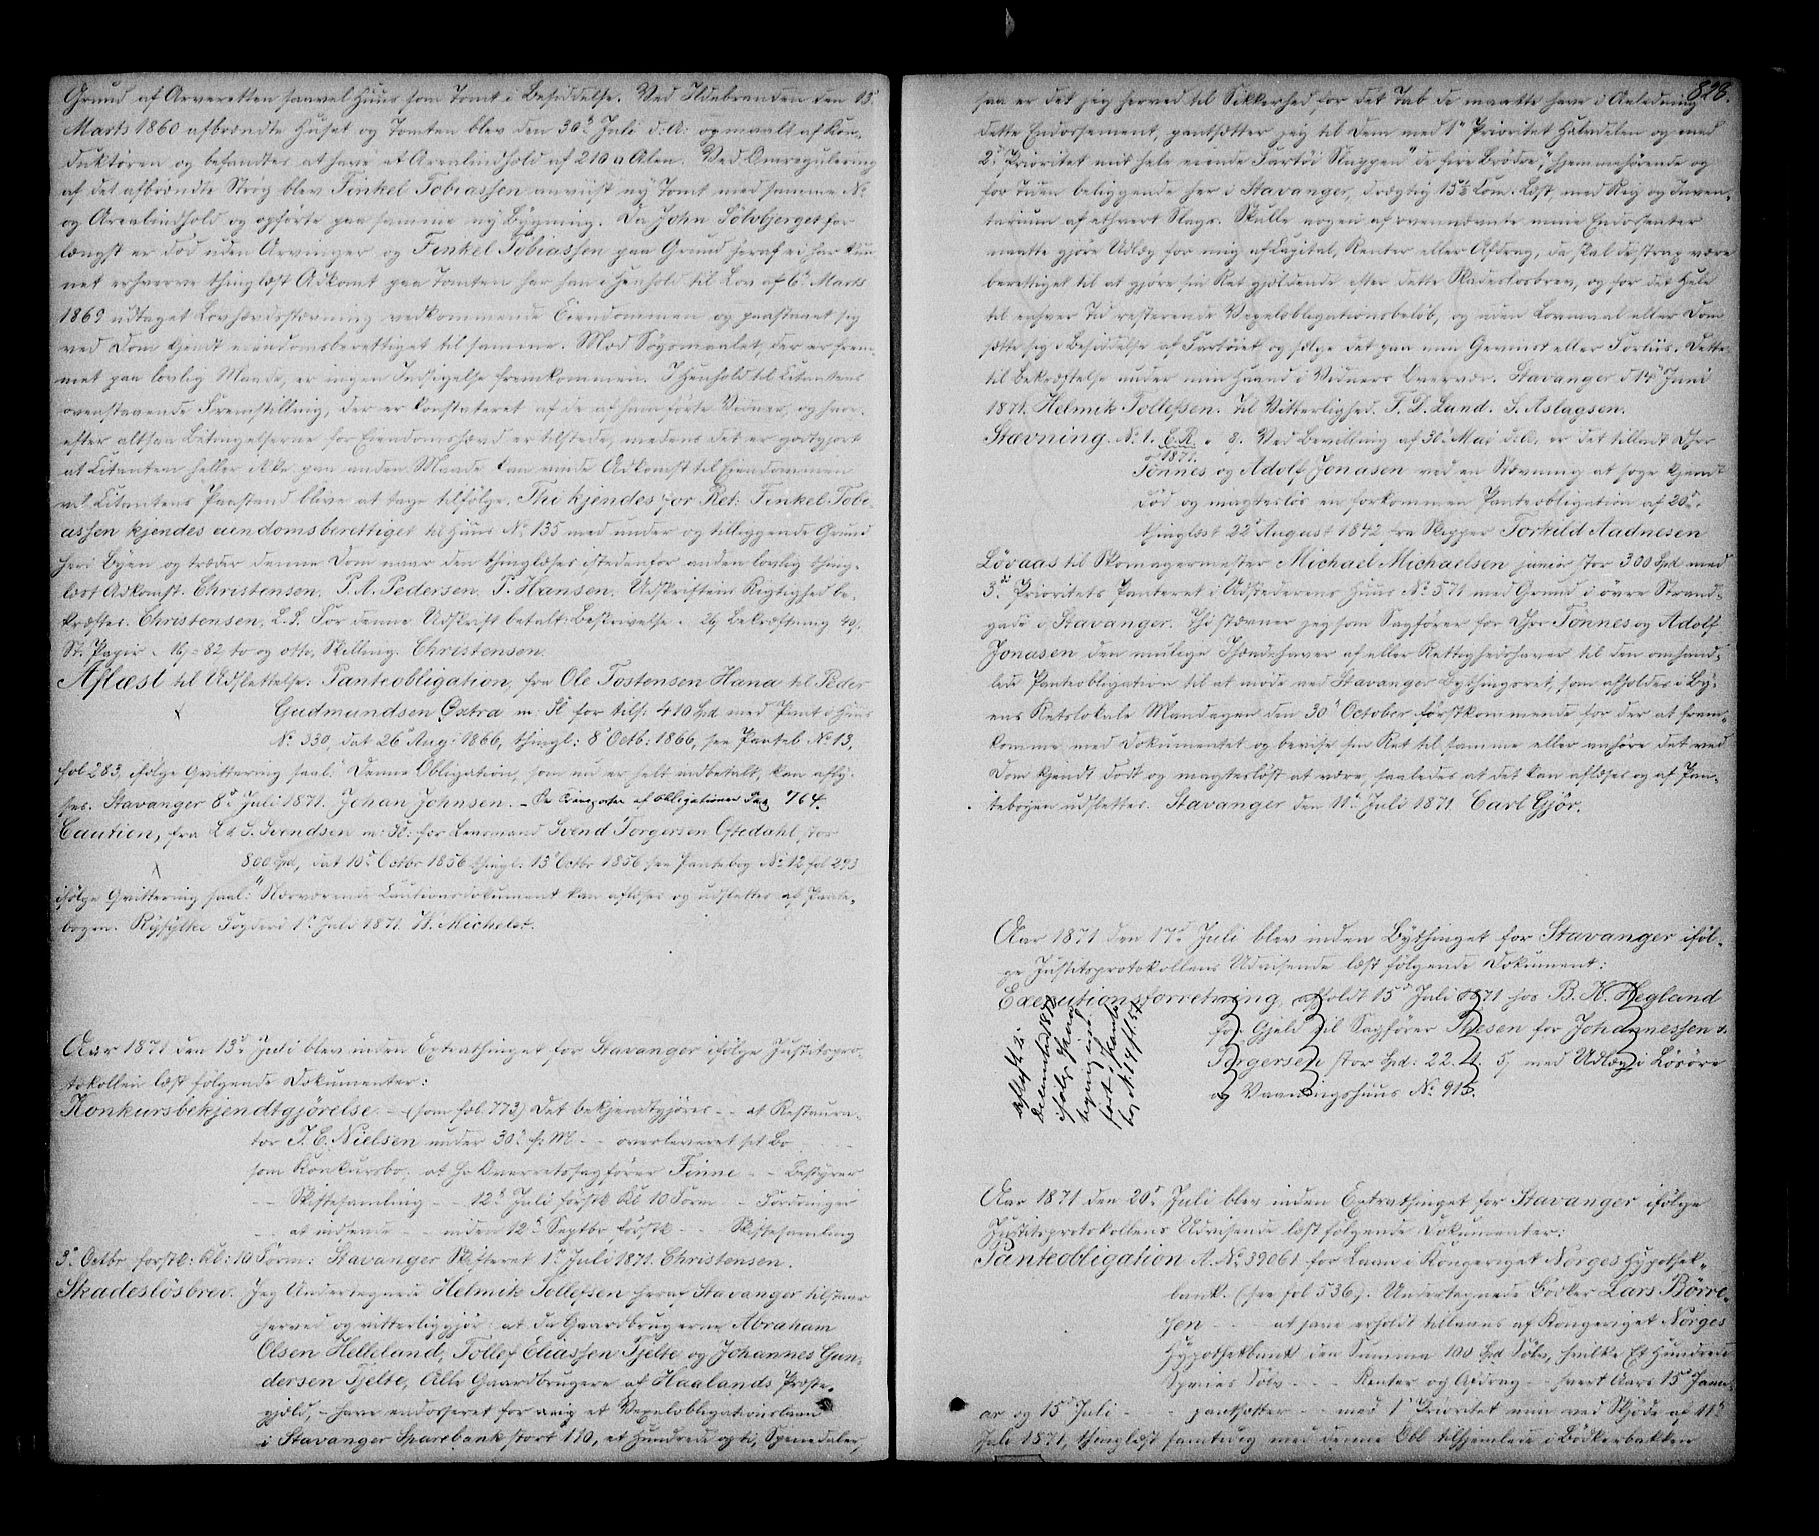 Grund af Arveretten saavel Huus som Tomt i Besiddelse. Ved Ildebranden den 15de
Marts 1860 afbrændte Huset og Tomten blev den 30te Juli d. A. opmaalt af Kon-
duktøren og befandtes at have et Arealindhold af 210 □ Alen. Ved Omregulering
af det afbrændte Strøg blev Finkel Tobiassen anviist ny Tomt med samme No
og Arealindhold og opførte paa samme ny Bygning. Da John Sölvbjerget for
længst er död uden Arvinger og Finkel Tobiassen paa Grund heraf ei har kun-
net erhverve thinglæst Adkomst paa Tomten har han i Henhold til Lov af 6te Marts
1869 udtaget Lovhævdsstævning vedkommende Eiendommen og paastaaet sig
ved Dom kjendt eiendomsberettiget til samme. Mod Søgsmaalet, der er frem-
met paa lovlig Maade, er ingen Indsigelse fremkommen. I Henhold til Citantens
ovenstaaende Fremstilling, der er konstateret af de af ham førte Vidner, og hvor-
efter altsaa Betingelserne for Eiendomshævd er tilstede, medens det er godtgjort
at Citanten heller ikke paa anden Maade kan vinde Adkomst til Eiendommen
vil Citantens Paastand blive at tage tilfølge. Thi kjendes for Ret: Finkel Tobi-
assen kjendes eiendomsberettiget til Huus No 135 med under og tilliggende Grund
her i Byen og træder denne Dom naar den thinglæses istedenfor anden lovlig thing-
læst Adkomst. Christensen. P. A. Pedersen. P. Hansen. Udskriftens Rigtighed be-
kræftes. Christensen. L. S. For denne Udskrift betalt: Beskrivelse - 24 Bekræftning 42.
St. Papir - 16 = 82 to og otti Skilling. Christensen.
Aflæst til Udslettelse. Panteobligation, fra Ole Tostensen Hana til Peder
Gudmundsen Oxtra m: Fl for tils: 410 Spd med Pant i Huus
No 330, dat 26 Aug: 1866, thingl: 8 Octb: 1866, see Panteb No 13,
fol 283, ifølge Qvittering saal: Denne Obligation, som nu er helt indbetalt, kan afly-
ses. Stavanger 8de Juli 1871. Johan Johnsen. 764.
Caution, fra L S. Svendsen m: Fl: for Lensmand Svend Torgersen Oftedahl stor
800 Spd, dat 10de Octbr 1856 thingl. 13 Octbr 1856 see Pantebog No 12 fol 293
ifølge Qvittering saal: "Nærværende Cautionsdokument kan aflæses og udslettes af Pante-
bogen. Ryfylke Fogderi 1ste Juli 1871. W. Michelet.
Aar 1871 den 13de Juli blev inden Extrathinget for Stavanger ifølge Justitspro-
tokollen læst følgende Dokumenter:
Konkursbekjendtgjørelse - (som fol. 773) Det bekjendtgjøres - - at Restaura-
tør J. C. Nielsen under 30te f. M. - - overleveret sit Bo
som Konkursbo, at Hr Overretssagfører Finne - - Bestyrer
- - Skiftesamling - - 12te Juli förstk Kl 10 Form - - Fordringer
at indsende - - inden 12te Septbr förstk - - Skiftesamling
3die Octbr forstk: kl: 10 Form: Stavanger Skifteret 1ste Juli 1871. Christensen.
Skadeslösbrev. Jeg Undertegnede Helmik Tollefsen heraf Stavanger tilstaar
herved og vitterliggjør: at da Gaardbrugerne Abraham
Olsen Helleland, Tollef Eliassen Tjelte og Johannes Gun-
dersen Tjelte, Alle Gaardbrugere af Haalands Præste-
gjeld, - have endosseret for mig et Vexelobligationslaan
i Stavanger Sparebank stort 110, et Hundrede og ti, Speciedaler,
828.
saa er det jeg herved til Sikkerhed for det Tab de maatte have i Anledning
dette Endossement, pantsætter jeg til Dem med 1ste Prioritet Halvdelen og med
2den Prioritet mit hele eiende Fartöi Sluppen "de fire Brödre", hjemmehørende og
for Tiden beliggende her i Stavanger, drægtig 15½ Com. Læst, med Rig og Inven-
tarium af ethvert Slags. Skulle nogen af ovennævnte mine Endossenter
maatte gjöre Udlæg for mig af Capital, Renter eller Afdrag, da skal de strax være
berettiget til at gjöre sin Ret gjældende efter dette Skadeslosbrev, og for det Hele
til enhver Tid resterende Vexelobligationsbelöb, og uden Lovmaal eller Dom
sætte sig i Besiddelse af Fartöiet og sælge det paa min Gevinst eller Forliis. Dette
til Bekræftelse under min Haand i Vidners Overvær. Stavanger d 14de Juni
1871. Helmik Tollefsen. Til Vitterlighed. T. D. Lund. S. Aslagsen.
Stævning. No 1. C.R. - 8. Ved Bevilling af 30te Mai d.A. er det tilladt Dhrr
1871.
Tönnes og Adolf Jonasen ved en Stævning at søge kjendt
död og magteslös en forkommen Panteobligation af 20de,
thinglæst 22de August 1842 fra Skipper Torkild Aadnesen
Lövaas til Skomagermester Michael Michaelsen junior stor 300 Spd med
3die Prioritets Panteret i Udstederens Huus No 571 med Grund i övre Strand-
gade i Stavanger. Thi stævner jeg som Sagfører for Dhrr Tönnes og Adolf
Jonasen den mulige Ihændehaver af eller Rettighedshaver til den omhand-
lede Panteobligation til at møde ved Stavanger Bythingsret, som afholdes i By-
ens Retslokale Mandagen den 30te October förstkommende for der at frem-
komme med Dokumentet og bevise sin Ret til samme eller anhöre det ved
Dom kjendt dødt og magteslöst at være, saaledes at det kan aflæses og af Pan-
tebogen udslettes. Stavanger den 11te Juli 1871. Carl Gjør.
Aar 1871 den 17de Juli blev inden Bythinget for Stavanger iföl-
ge Justitsprotokollens Udvisende læst følgende Dokument:
Executionsforretning, afholdt 15de Juli 1871 hos B. K. Hegland
for Gjeld til Sagfører Thesen for Johannessen &
Torgersen stor Spd: 22. 4. 5, med Udlæg i Lösöre
og Vaaningshuus No 913.
aflyst 2
December 1872
ifølge
ført i Pante-
bog No 14 fol. 54
Aar 1871 den 20de Juli blev inden Extrathinget for Stavanger ifølge
Justitsprotokollens Udvisende læst følgende Dokumenter:
Panteobligation A. No 39061 for Laan i Kongeriget Norges Hypothek-
bank. (see fol 536). Undertegnede Bödker Lars Börre-
sen - - at have erholdt tillaans af Kongeriget Norges
Hypothekbank den Summa 100 Spd Sölv, hvilke Et Hundrede
Species Sölv - - - Renter og Afdrag - - hvert Aars 15de Janu-
ar og 15de Juli - - pantsætter - - med 1ste Prioritet min ved Skjöde af 11te
Juli 1871, thinglæst samtidig med denne Obl. tilhjemlede i Bödkerbakken